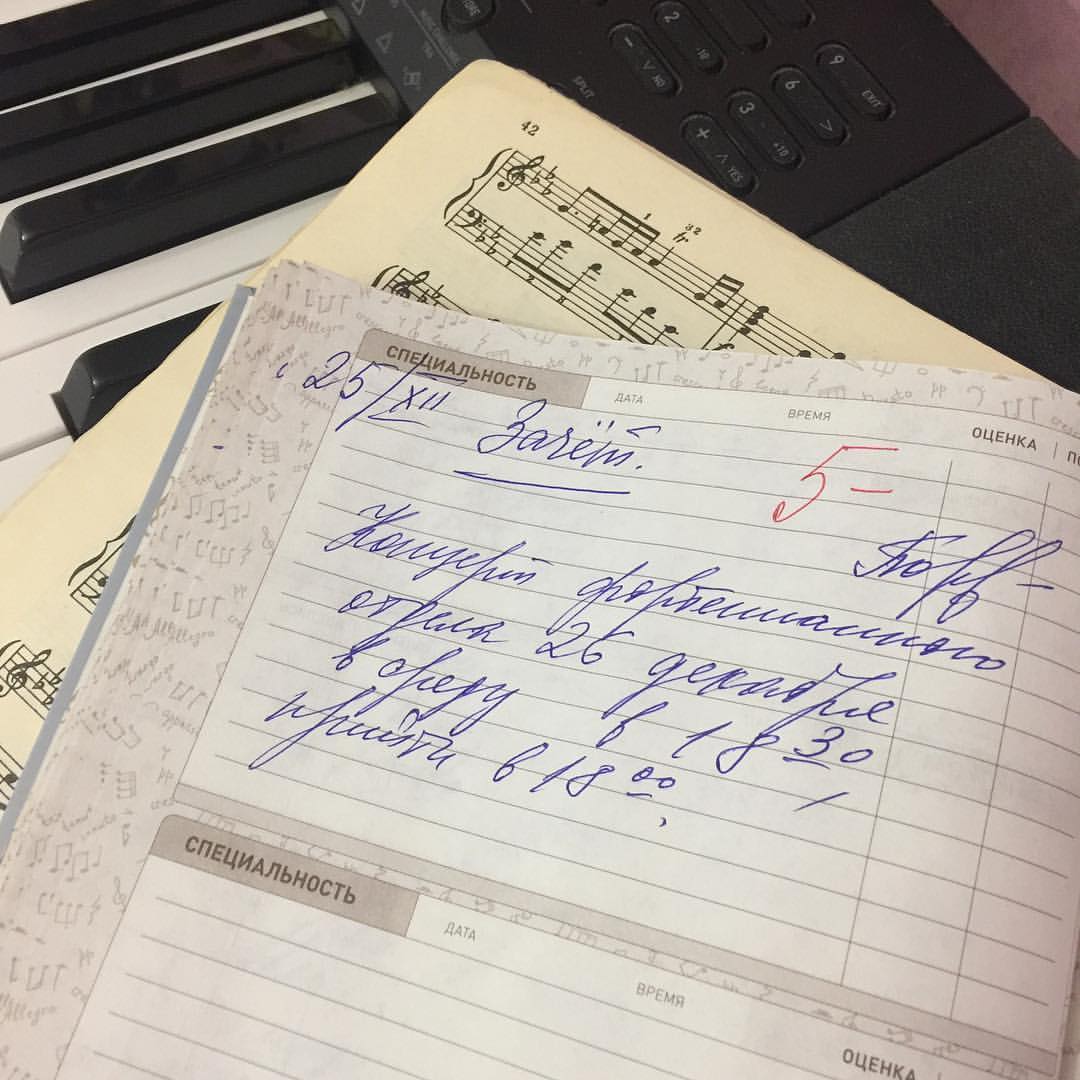 9
EXIT
6
>
2
-10
3
+10
-
NO
+
YES
SPLIT
42
1
32
tr
СПЕЦИАЛЬНОСТЬ
ДАТА
ВРЕМЯ
ОЦЕНКА
25/XII
Зачёт.
5-
Концерт фортепианного
отдела 26 декабря
в среду в 18 30
прийти в 18 00.
СПЕЦИАЛЬНОСТЬ
ДАТА
ВРЕМЯ
ОЦЕНКА